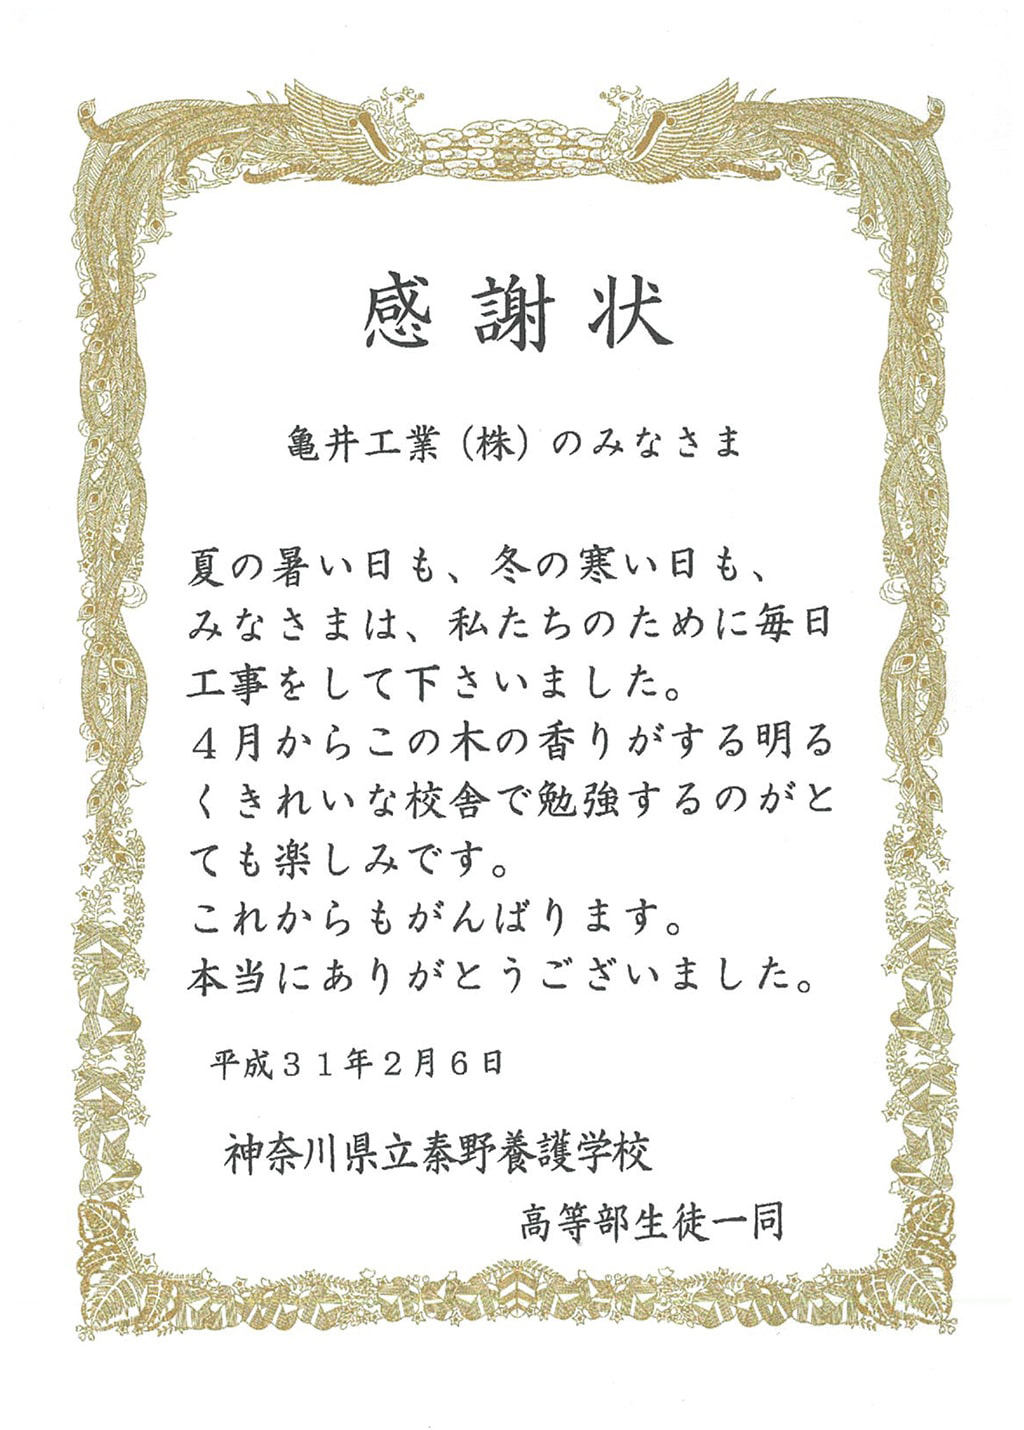 感謝状
亀井工業(株)のみなさま
夏の暑い日も、冬の寒い日も、
みなさまは、私たちのために毎日
工事をして下さいました。
４月からこの木の香りがする明る
くきれいな校舎で勉強するのがと
ても楽しみです。
これからもがんばります。
本当にありがとうございました。
平成３１年２月６日
神奈川県立秦野養護学校
高等部生徒一同